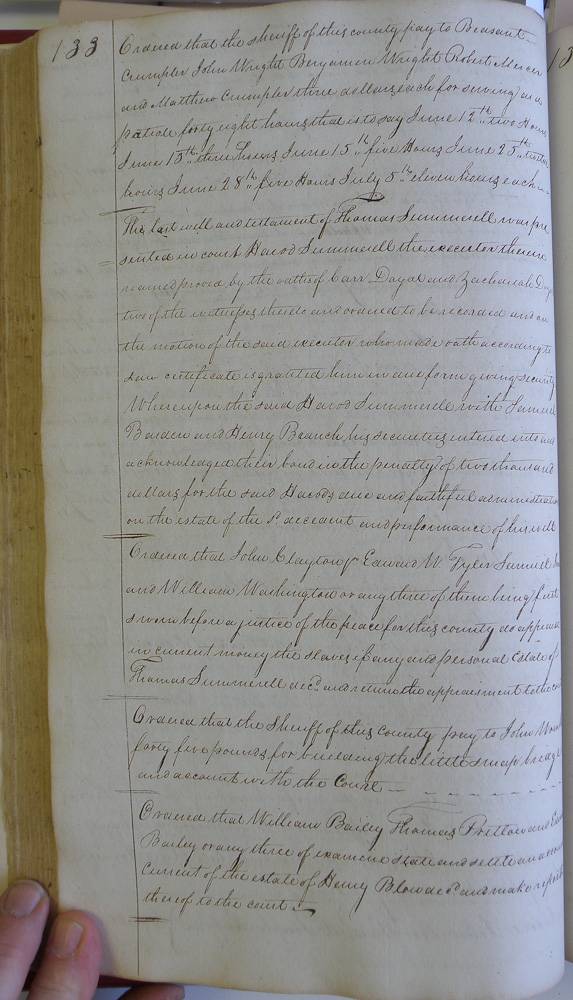 133
Ordered that the sheriff of this county pay to Beasant
Crumpler John Wright Benjamin Wright Robert Mercer
and Matthew Crumpler three dollars each for serving as a
patrole forty eight hours that is to say June 12th two Hours
June 13th three Hours June 15th five Hours June 25th twelve
hours June 28th five Hours July 5th eleven hours each
The last will and testament of Thomas Summerell was pre
sented in court Harod Summerell the executor therein
named proved by the oaths of Carr Doyal and Zachariah
two of the witnesses thereto and ordered to be recorded and on
the motion of the said executor who made oath according to
law certificate is granted him in due form giving security
Whereupon the said Harod Summerell with Samuel
Barden and Henry Branch his securities entered into and
acknowledged their bond in the penalty of two thousand
dollars for the said Harods due and faithful administration
on the estate of the sd. decedent and performance of his will
Ordered that John Clayton Jr Edward W. Tyler Samuel
and William Washington or any three of them being first
sworn before a justice of the peace for this county do appraise
in current money the slaves if any and personal Estate of
Thomas Summerell decd and return the appraisment to the
Ordered that the Sheriff of this County pay to John
forty five pounds for building the little swamp bridge
and account with the Court
Ordered that William Bailey Thomas Pretlow and
Bailey or any three of examine state and settle an account
Current of the estate of Henry Blow decd and make report
thereof to the court